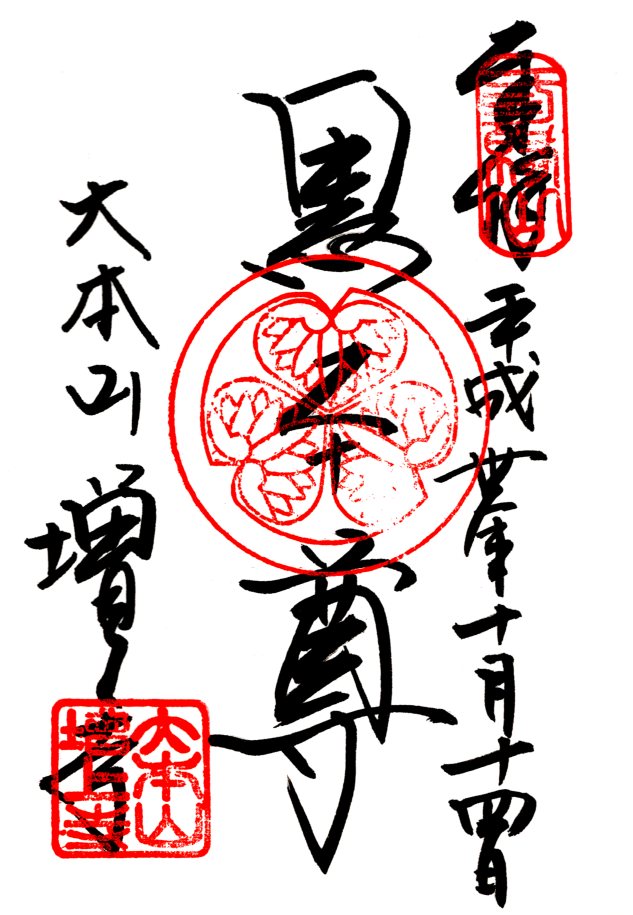 奉拝 平成丗年十月十四日
黒本尊
大本山 増上寺
大本山
増上寺